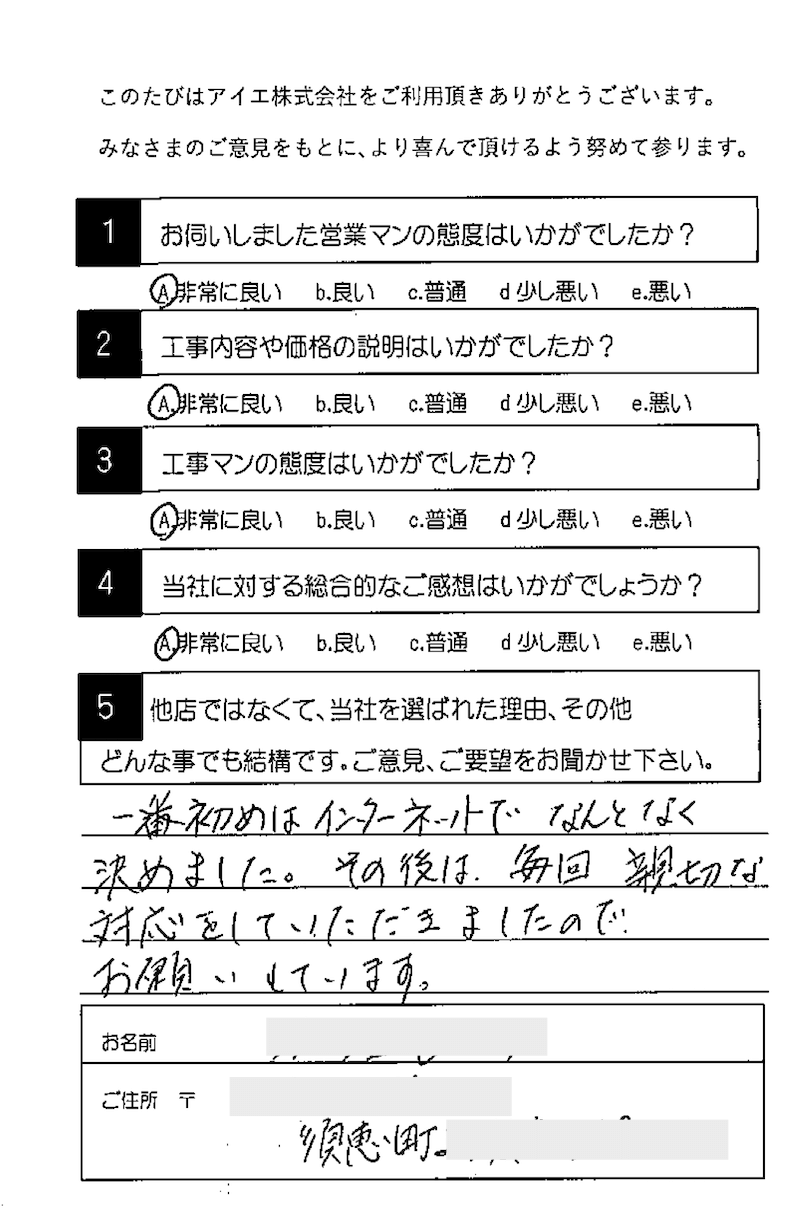 このたびはアイエ株式会社をご利用頂きありがとうございます。
みなさまのご意見をもとに、より喜んで頂けるよう努めて参ります。
1 お伺いしました営業マンの態度はいかがでしたか？
A.非常に良い b.良い c.普通 d 少し悪い e.悪い
2 工事内容や価格の説明はいかがでしたか？
A.非常に良い b.良い c.普通 d 少し悪い e.悪い
3 工事マンの態度はいかがでしたか？
A.非常に良い b.良い c.普通 d 少し悪い e.悪い
4 当社に対する総合的なご感想はいかがでしょうか？
A.非常に良い b.良い c.普通 d 少し悪い e.悪い
5 他店ではなくて、当社を選ばれた理由、その他
どんな事でも結構です。ご意見、ご要望をお聞かせ下さい。
一番初めはインターネットで なんとなく
決めました。その後は、毎回 親切な
対応をしていただきましたので
お願いしています。
お名前
ご住所 〒
須恵町